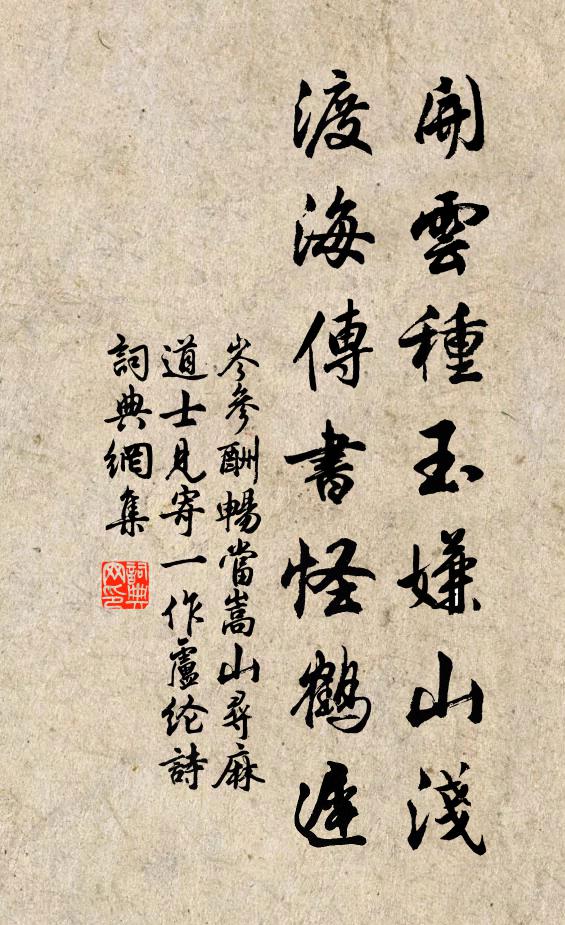 開雲種玉嫌山淺
渡海傳書怪鶴遲
岑參酬暢當嵩山尋麻
道士見寄一作盧纶詩
詞典網集
詞典
网印